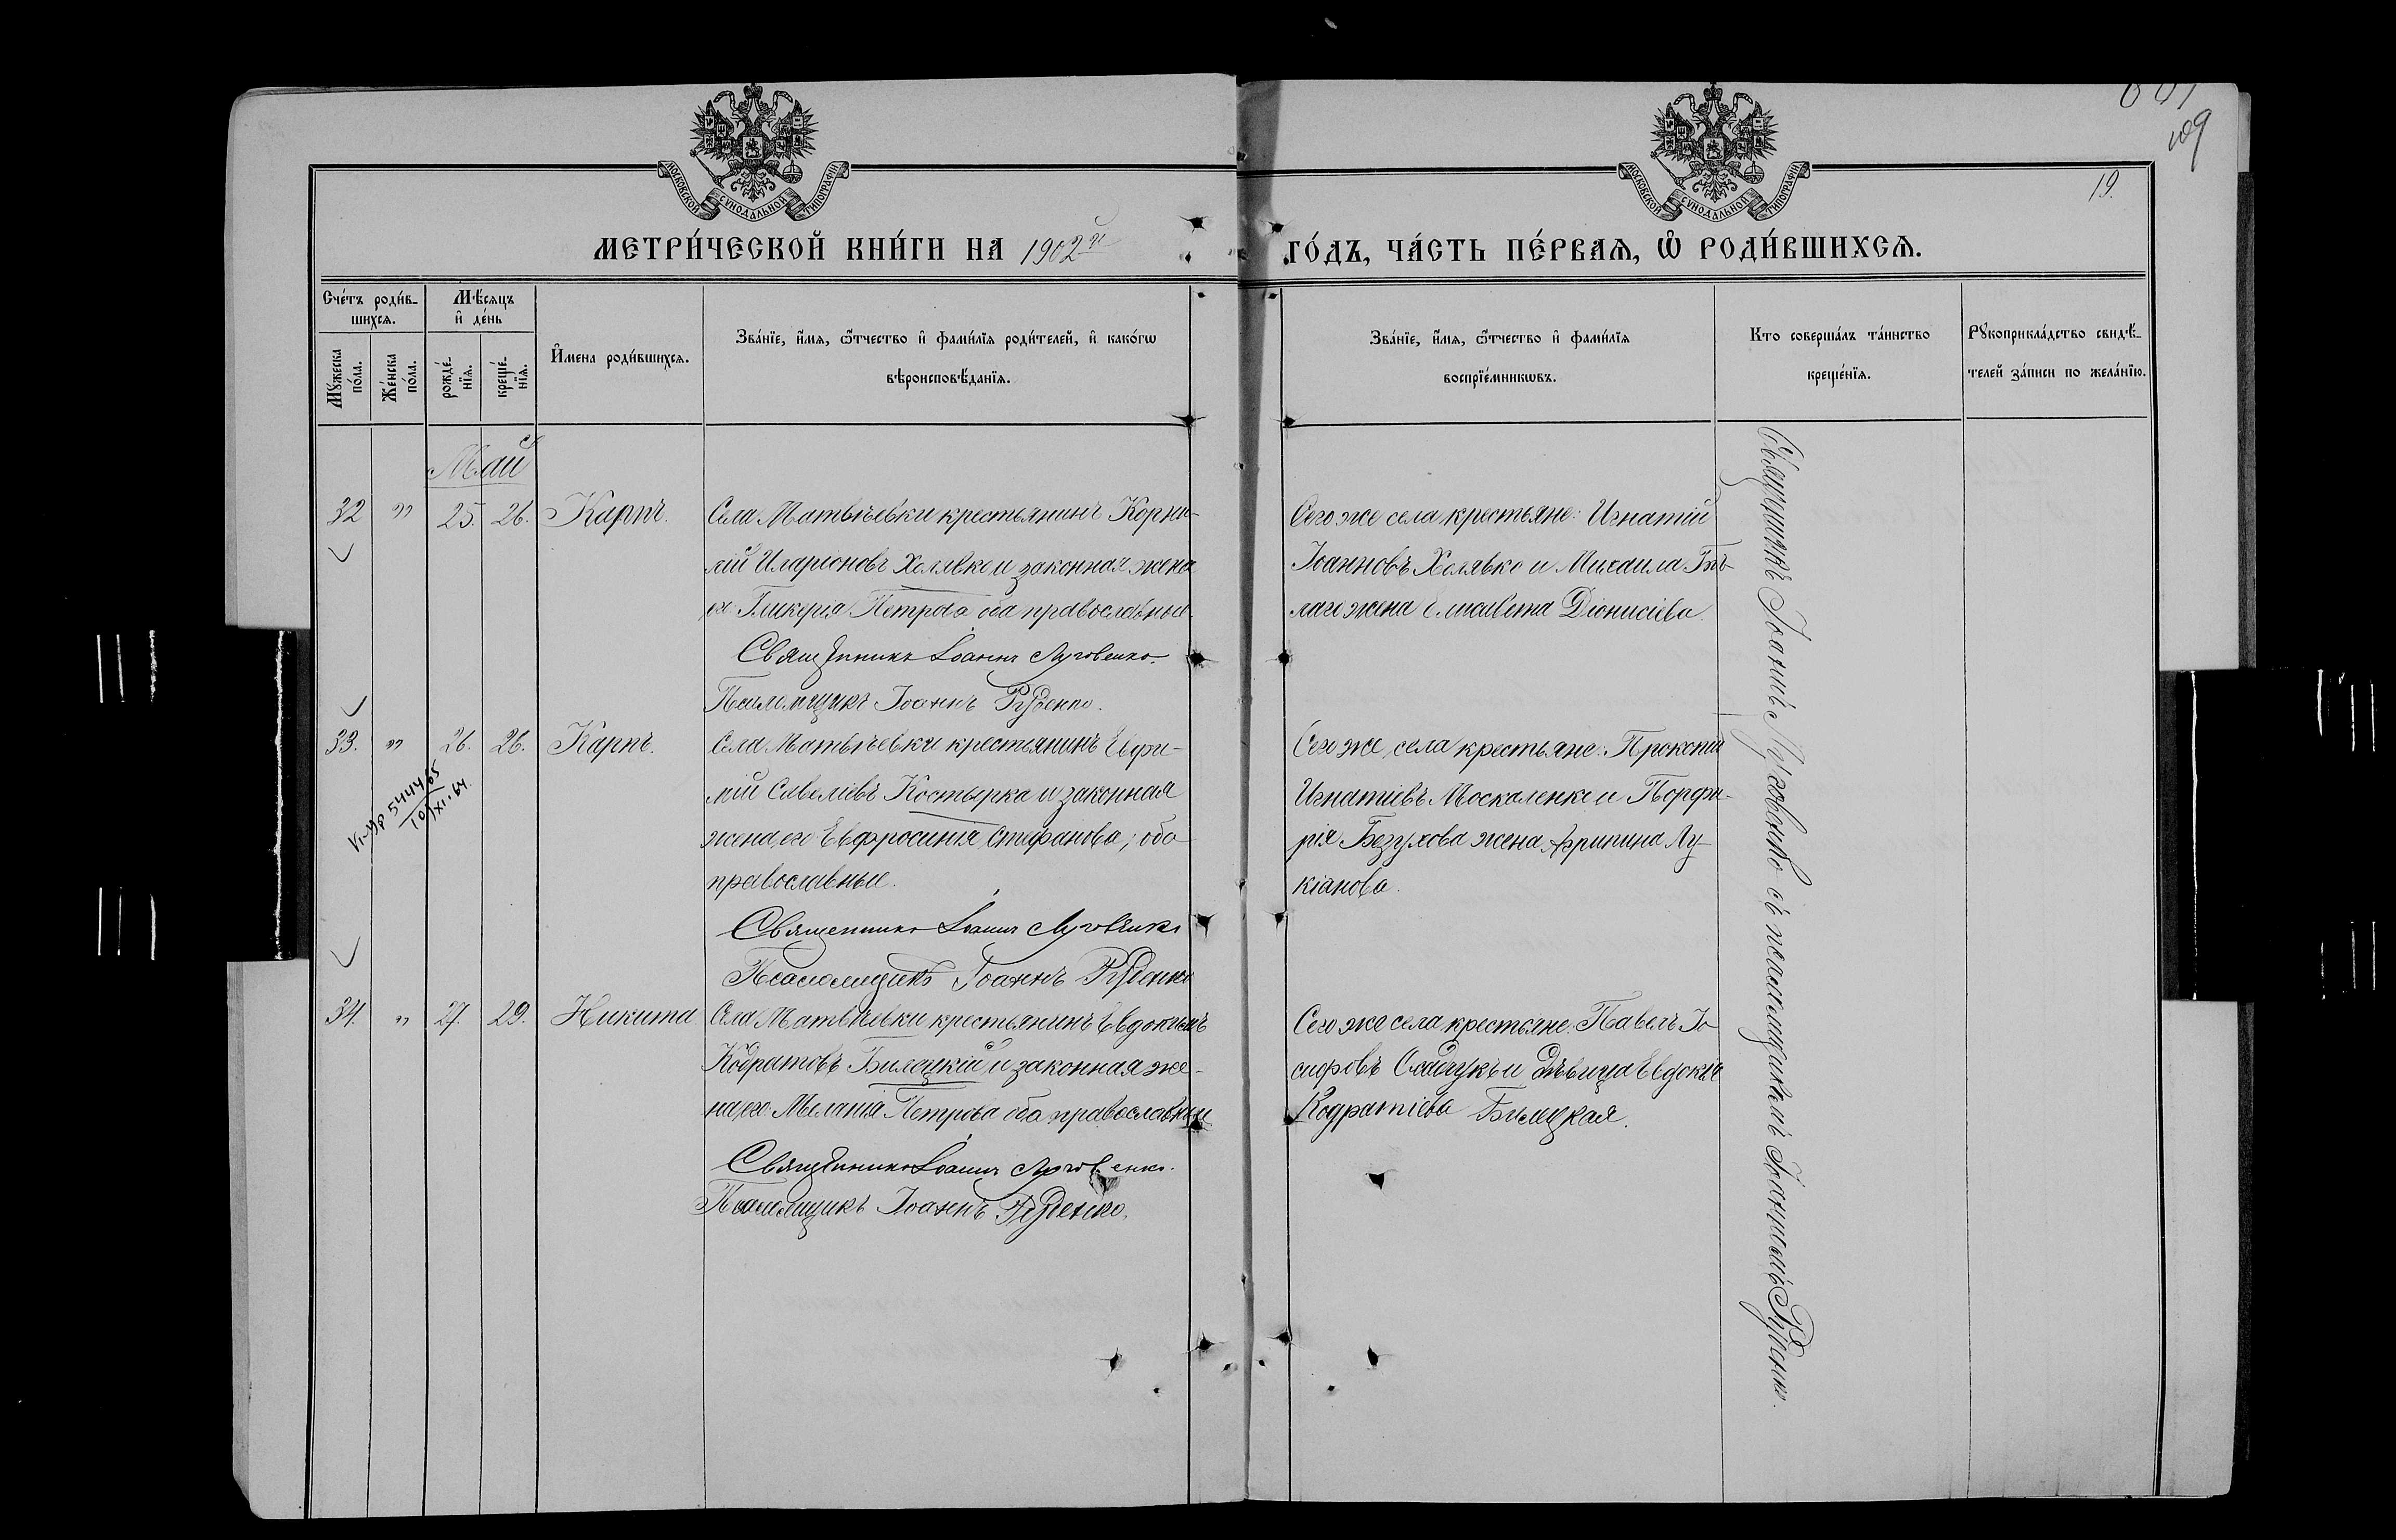 МОСКОВСКОЙ СУНОДАЛЬНОЙ ТИПОГРАФІИ
МОСКОВСКОЙ СУНОДАЛЬНОЙ ТИПОГРАФІИ
109
19.
МЕТРИ́ЧЕСКОЙ КНИ́ГИ НА 1902й
ГО́ДЪ, ЧА́СТЬ ПЕ́РВАЯ, Ѡ РОДИ́ВШИХСѦ.
Сче́тъ роди́в-
шихсѧ.
Мѣ́сяцъ
и҆ де́нь
Мꙋ́жеска
по́ла.
Же́нска
по́ла.
рожде́-
нїѧ.
креще́-
нїѧ.
И҆мена роди́вшихсѧ.
Зва́нїе, и҆́мѧ, ѻ҆́тчество и҆ фами́лїѧ роди́телей, и҆ како́гѡ
вѣроисповѣ́данїѧ.
Зва́нїе, и҆́мѧ, ѻ҆́тчество и҆ фами́лїѧ
воспрїе́мникѡвъ.
Кто соверша́лъ та́инство
креще́нїѧ.
Рꙋкоприкла́дство свидѣ́-
телей за́писи по жела́нїю.
Май
32 " 25. 26. Карпъ.
Села Матвѣевки крестьянинъ Корни-
лій Иларіоновъ Холявко и законная жена
его Гликерія Петрова оба православные.
Священникъ Іоаннъ Луговенко.
Псаломщикъ Іоаннъ Руденко.
Сего же села крестьяне: Игнатій
Іоанновъ Холявко и Михаила Бѣ-
лаго жена Елисавета Діонисіева.
33. " 26. 26. Карпъ.
Села Матвѣевки крестьянинъ Евфи-
мій Савеліевъ Костырка и законная
жена его Евфросинія Стефанова; оба
православные.
Священникъ Іоаннъ Луговенко
Псаломщикъ Іоаннъ Руденко
Сего же села крестьяне: Прокопій
Игнатіевъ Москаленко и Порфи-
рія Безухова жена Агрипина Лу-
кіанова.
34. " 27. 29. Никита
Села Матвѣевки крестьянинъ Евдокимъ
Кодратовъ Билецкій и законная же-
на его Меланія Петрова оба православные
Священникъ Іоаннъ Луговенко.
Псаломщикъ Іоаннъ Руденко.
Сего же села крестьяне: Павелъ Іо-
сифовъ и дѣвица Евдокія
Кодратіева Билецкая.
Священникъ Іоаннъ Луговенко съ псаломщикомъ Іоанномъ Руденко.